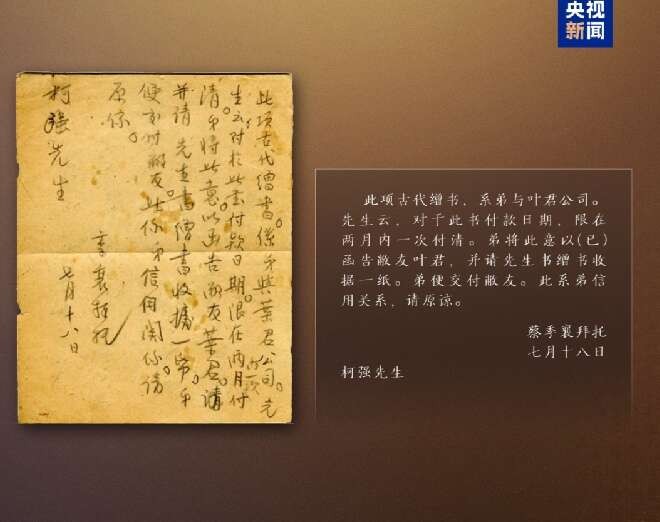 央视
新闻
此項古代繒書。係弟與葉君公司。先
生云对於此書付款日期限在两月内一次付
清。弟將此意以函告敝友葉君。
并請 先生書繒書收據一帋。弟
便交付敝友。此係弟信用関係請
原谅。
季襄拜托
七月十八日
柯强先生
此项古代缯书，系弟与叶君公司。
先生云，对于此书付款日期，限在
两月内一次付清。弟将此意以(已)
函告敝友叶君，并请先生书缯书收
据一纸。弟便交付敝友。此系弟信
用关系，请原谅。
蔡季襄拜托
七月十八日
柯强先生